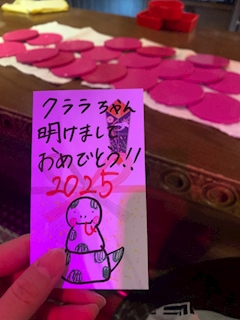 クララちゃん
明けまして
おめでとう!!
2025